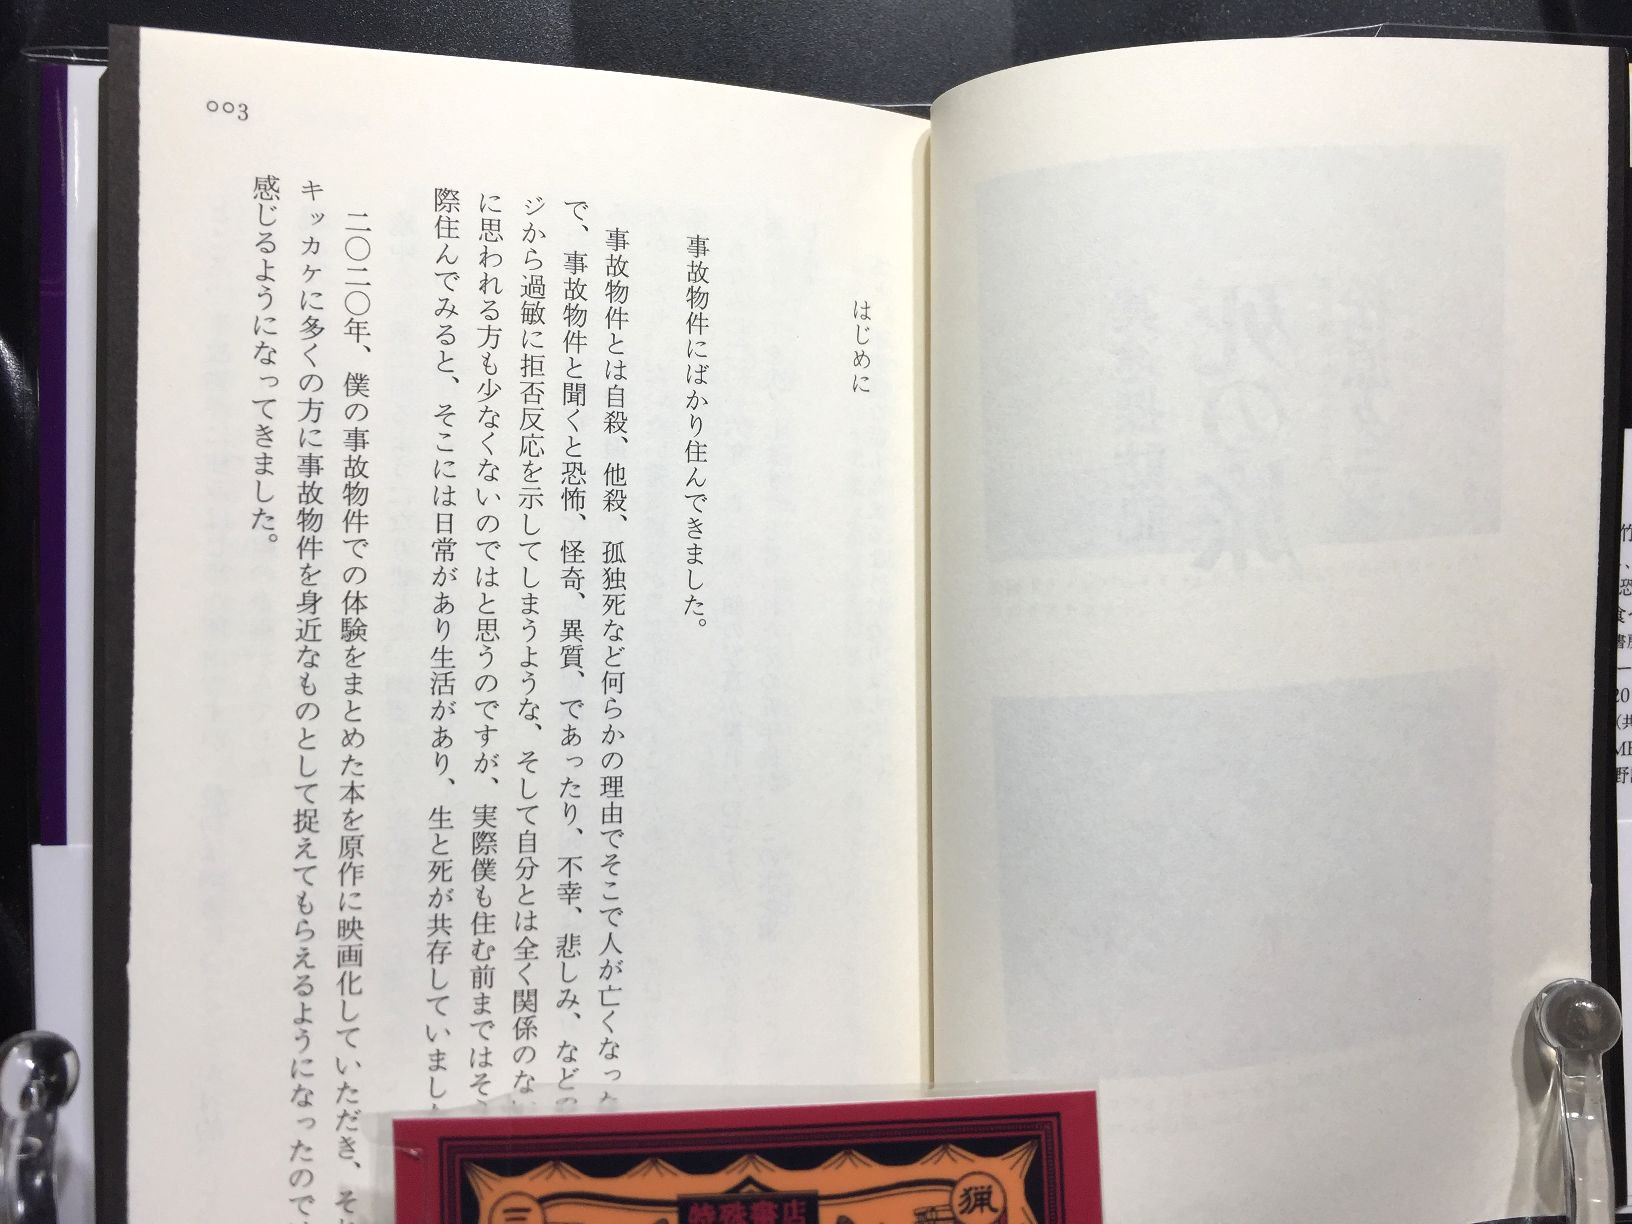 003
はじめに
事故物件にばかり住んできました。
事故物件とは自殺、他殺、孤独死など何らかの理由でそこで人が亡くなった
で、事故物件と聞くと恐怖、怪奇、異質、であったり、不幸、悲しみ、などの
ジから過敏に拒否反応を示してしまうような、そして自分とは全く関係のな
に思われる方も少なくないのではと思うのですが、実際僕も住む前まではそ
際住んでみると、そこには日常があり生活があり、生と死が共存していまし
二〇二〇年、僕の事故物件での体験をまとめた本を原作に映画化していただき、そ
キッカケに多くの方に事故物件を身近なものとして捉えてもらえるようになったので
感じるようになってきました。
特殊書店
三
猟